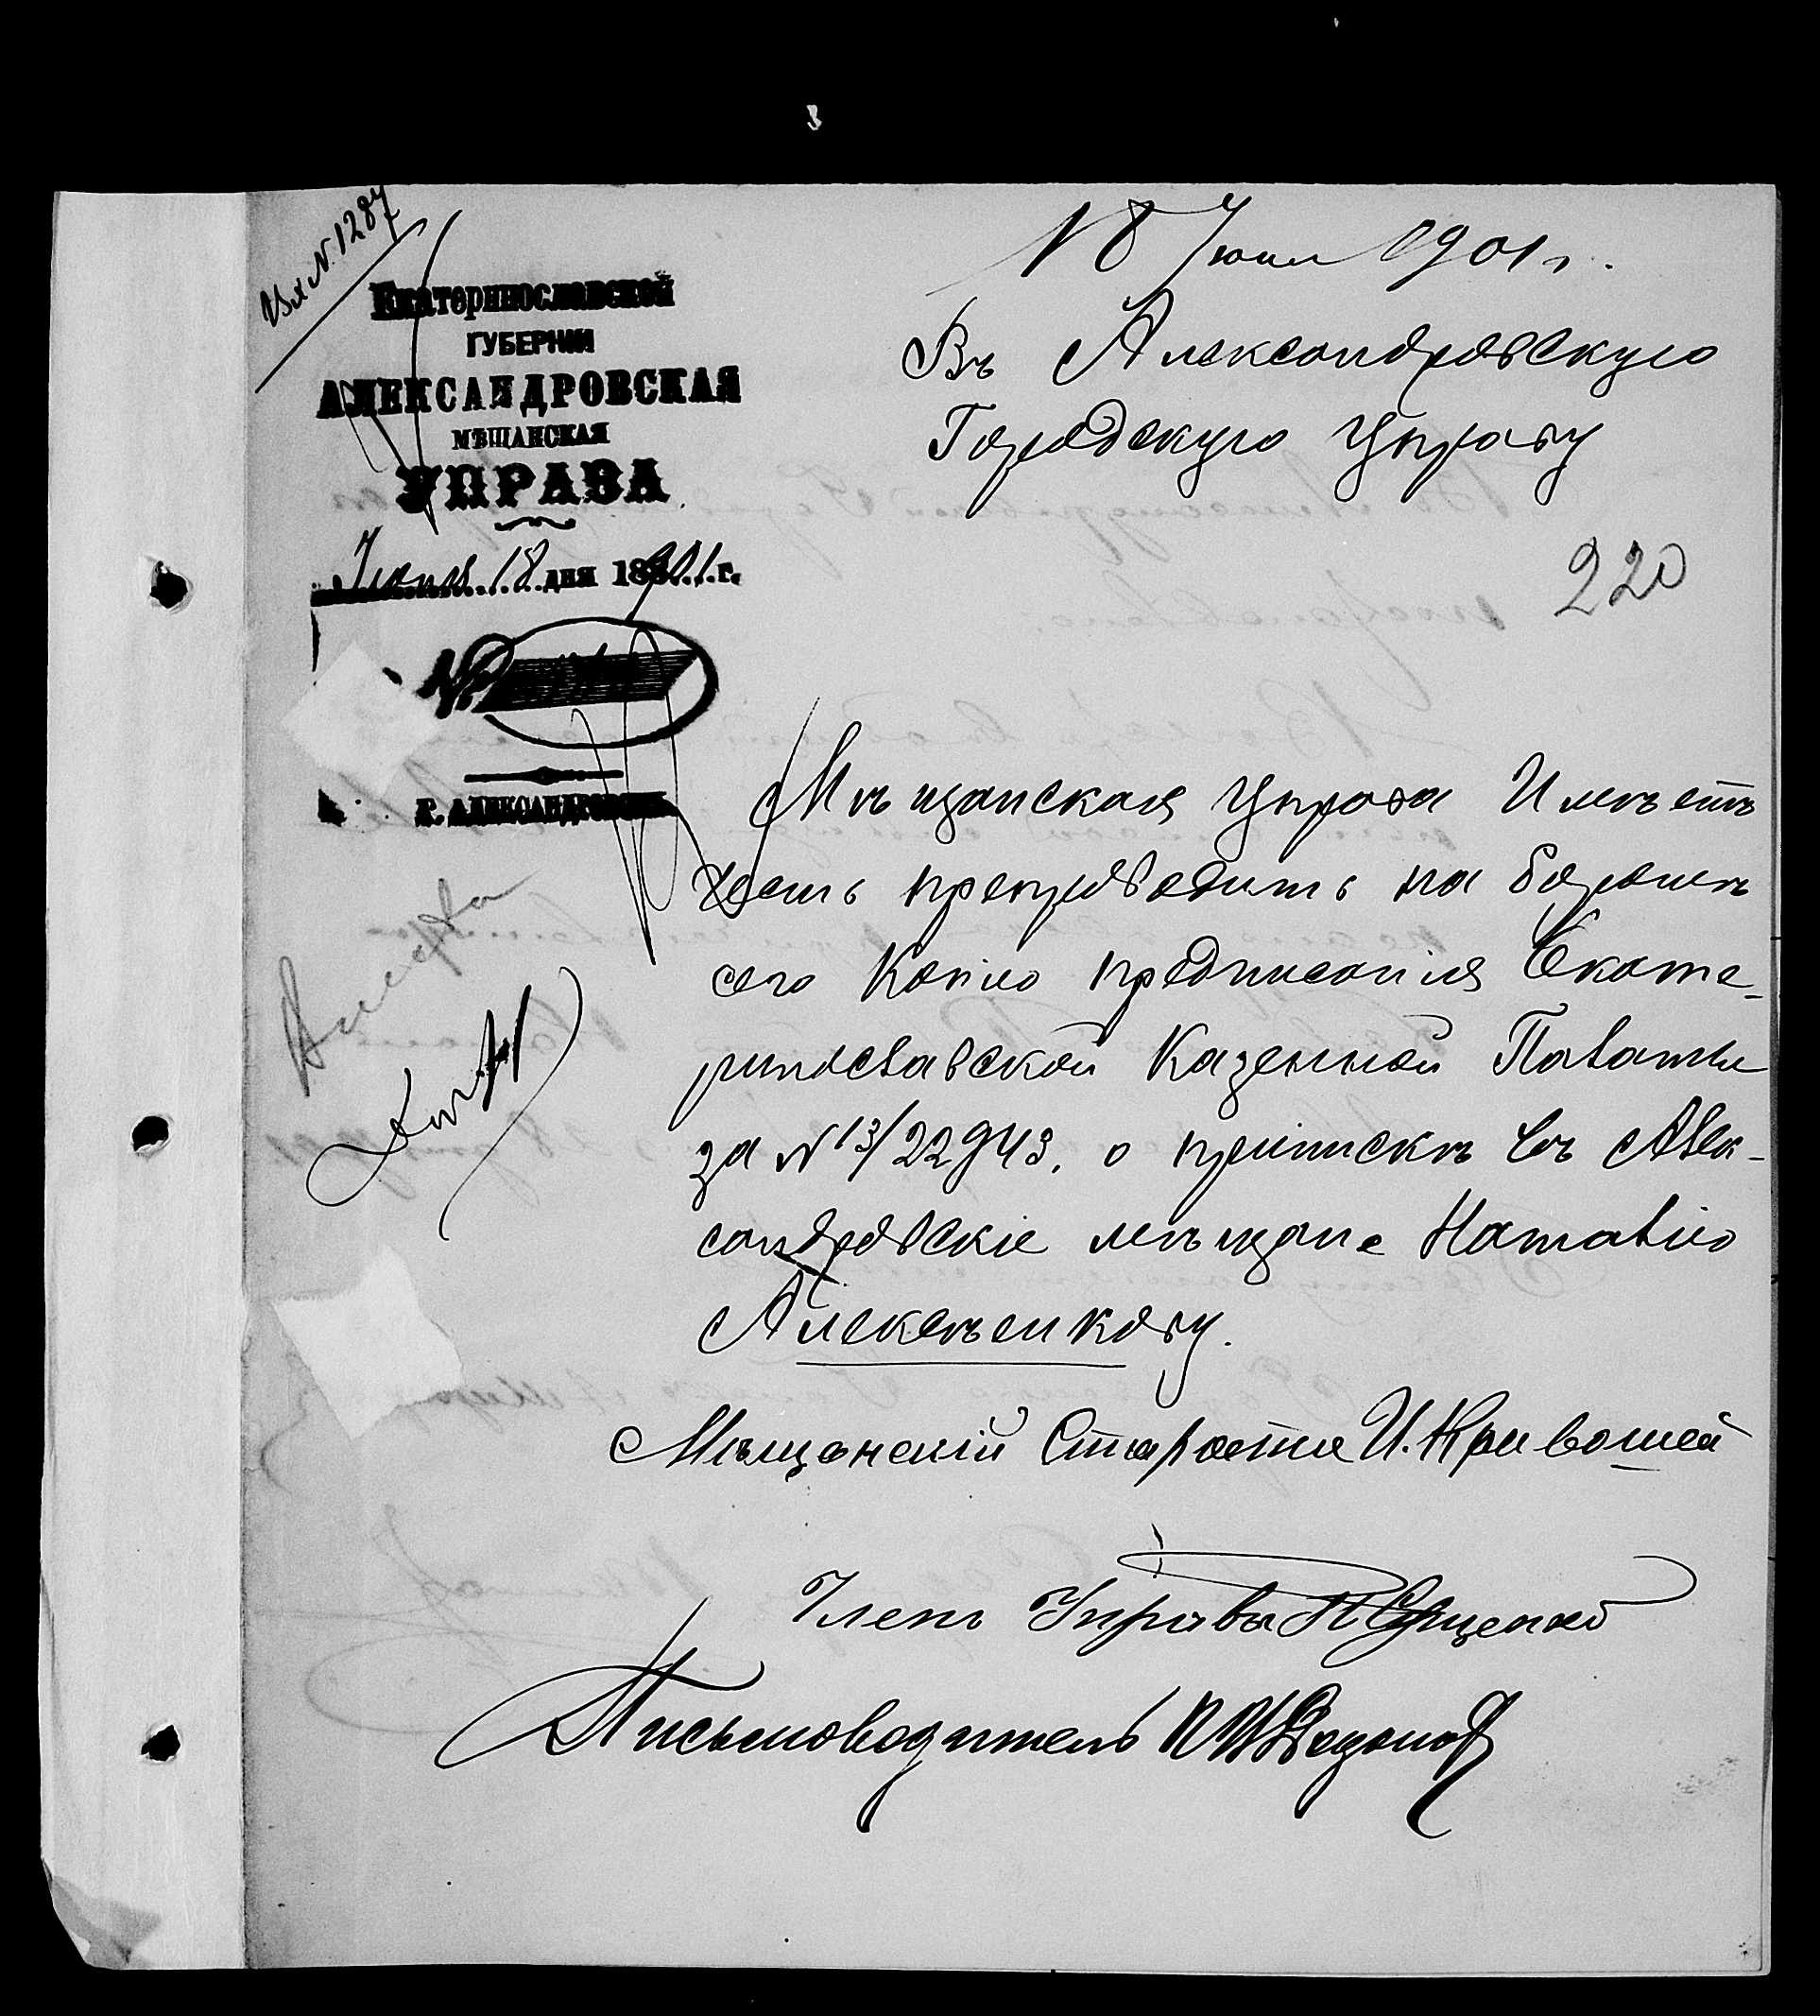 Вх N. 1287
18 Июня 1901 г.
Екатеринославской
ГУБЕРНІИ
АЛЕКСАНДРОВСКАЯ
МѢЩАНСКАЯ
УПРАВА
Іюня 18 дня 1901 г.
№
Г. АЛЕКСАНДРОВСКЪ.
Въ Александровскую
Городскую Управу
220
Мѣщанская Управа Имѣетъ
честь препроводить на распоряж
сего Копію предписанія Екате-
ринославской Казенной Палаты
за N 13/22943, о припискѣ въ Алек-
сандровскіе мѣщане Наталію
Алексѣенкову.
Мѣщанскій Староста И. Кривошей
Членъ Управы
Письмоводитель